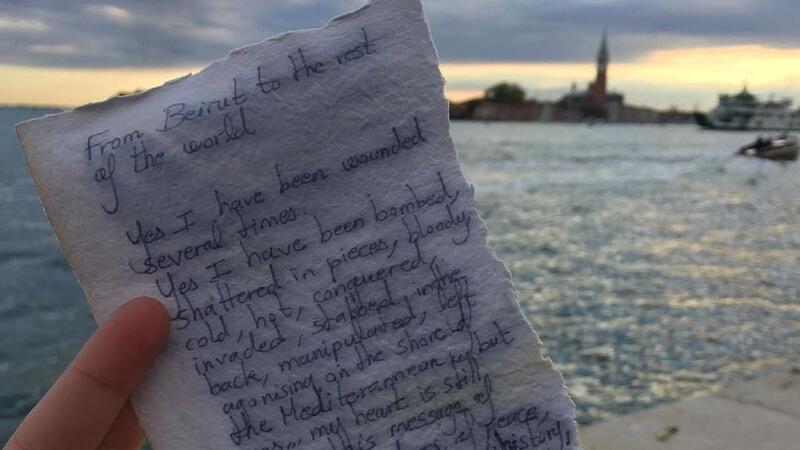 From Beirut to the rest
of the world
Yes I have been wounded
several times.
Yes I have been bombed,
shattered in pieces, bloody,
cold, hot, conquered,
invaded, stabbed in the
back, manipulated, left
agonising on the shore of
the Mediterranean but
my heart is still
this message of
of peace,
history,